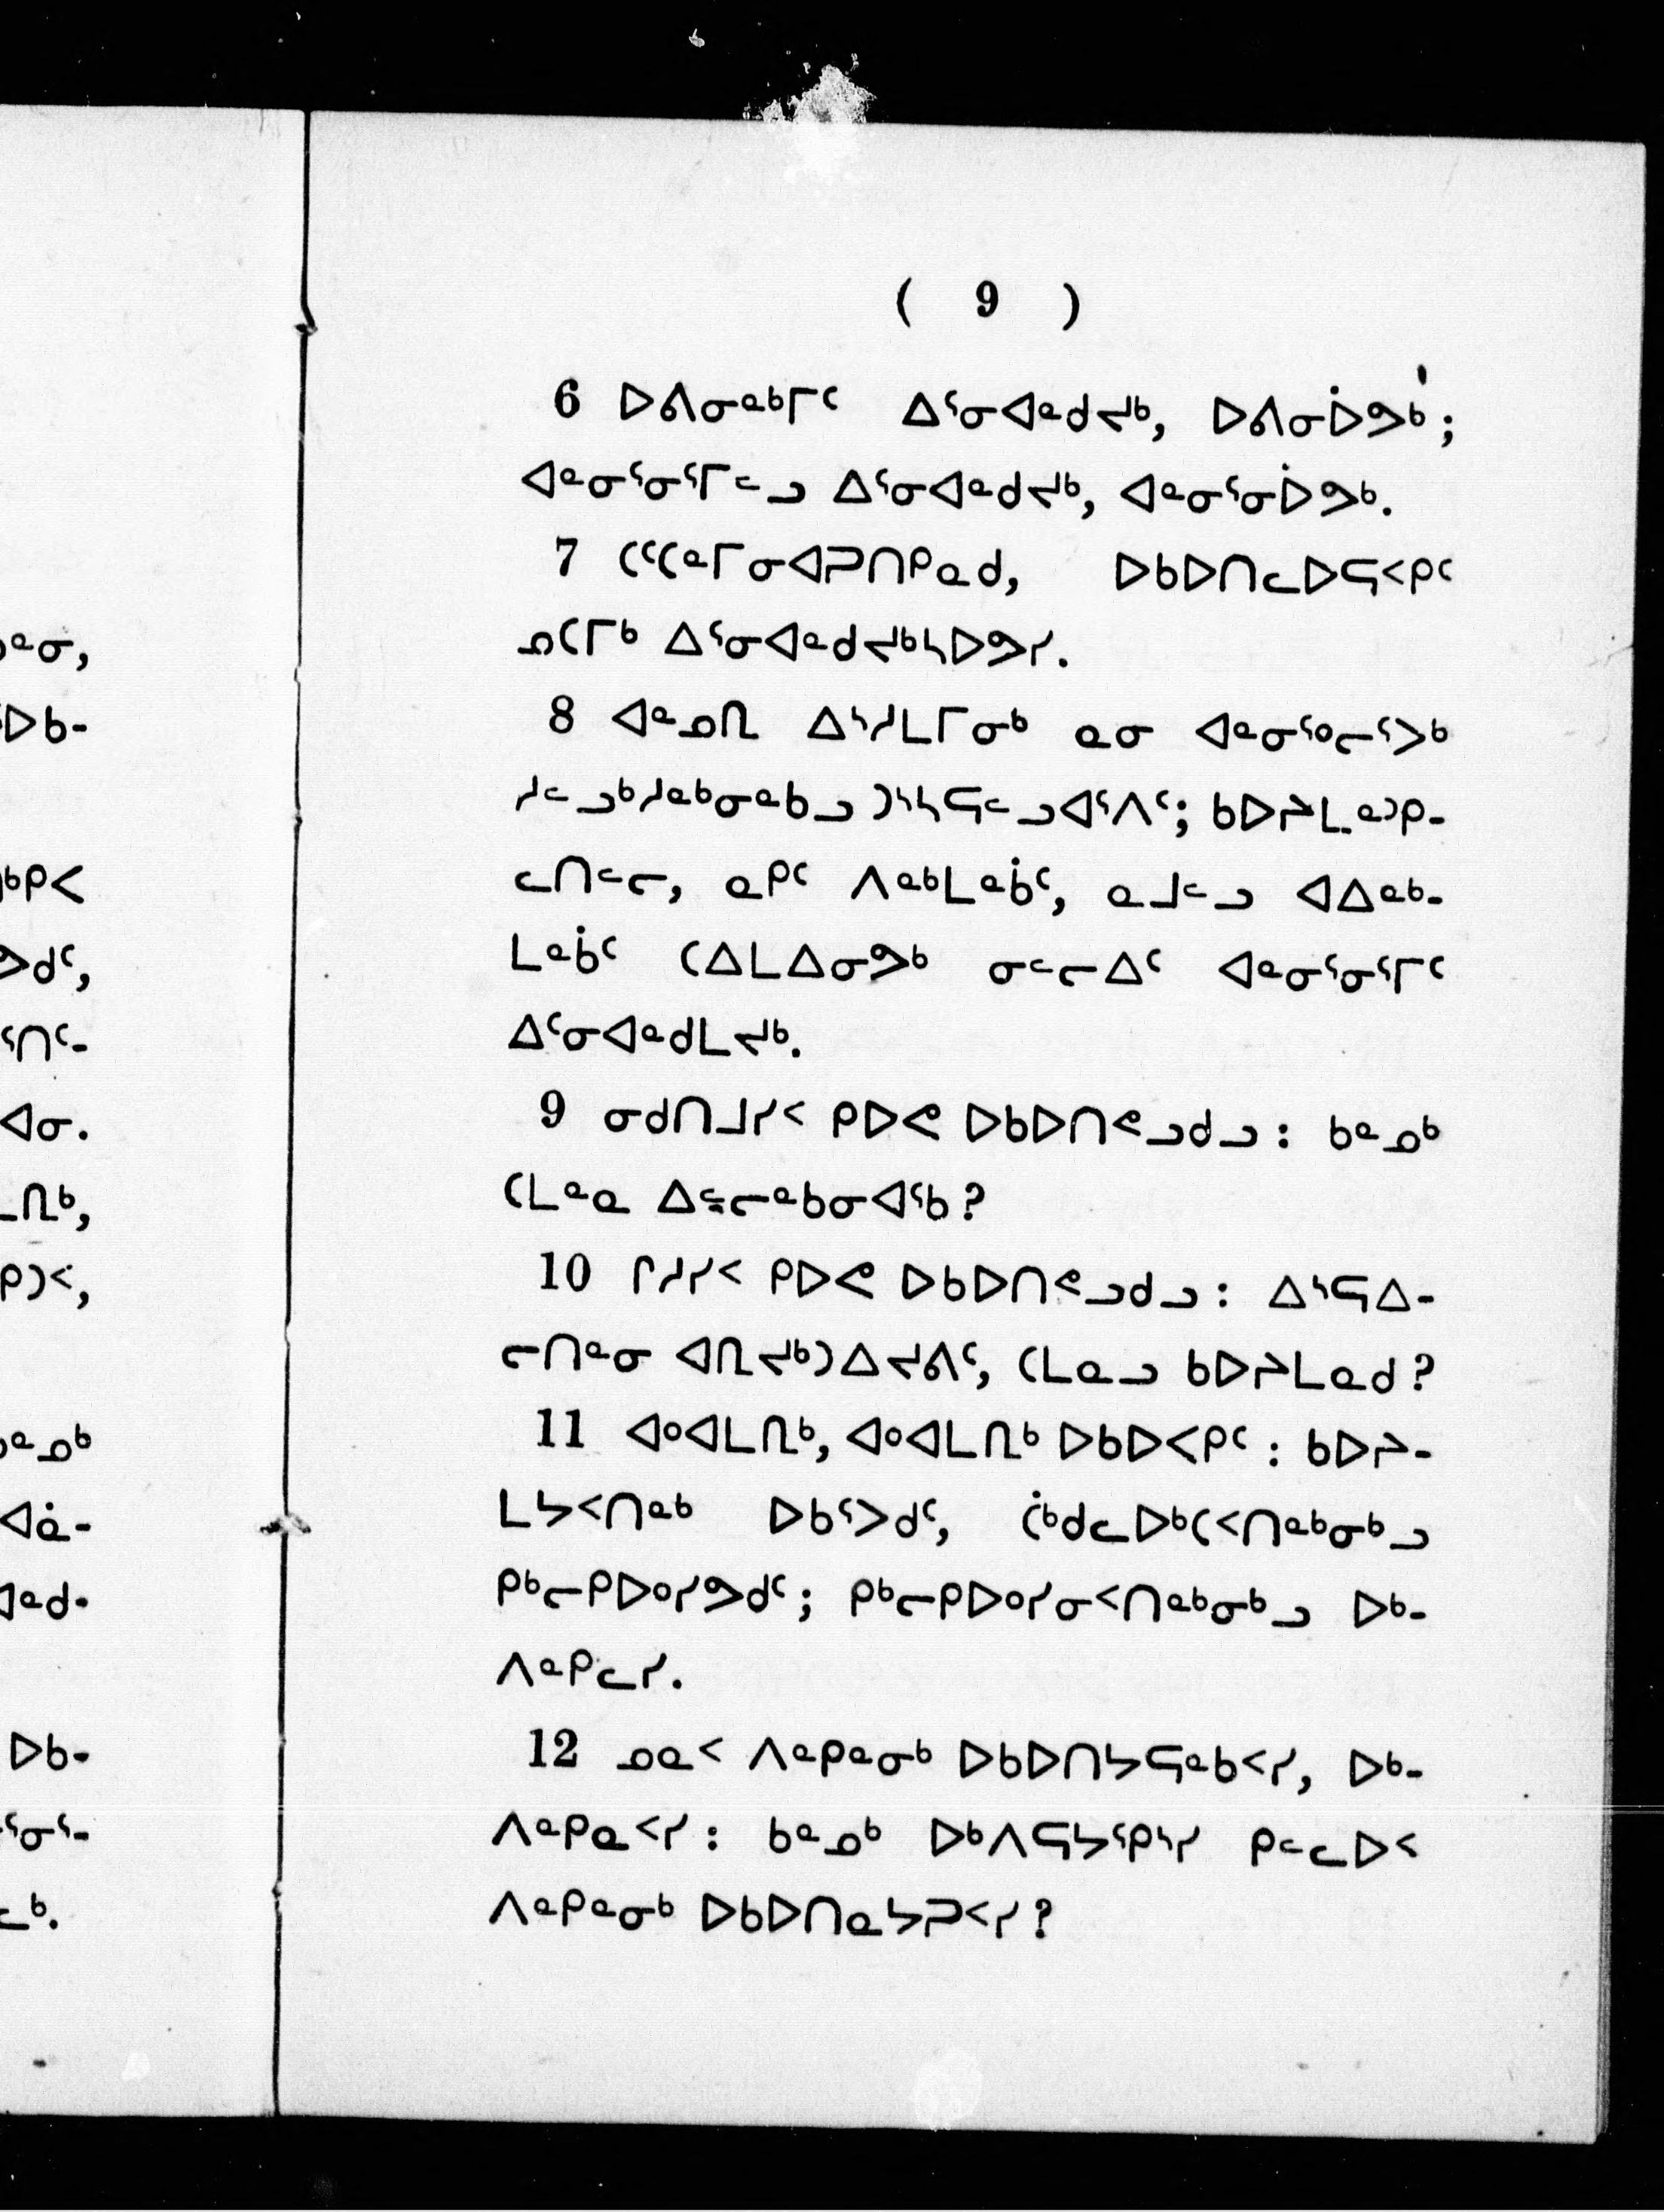 ( 9 )
6 ᐅᕕᓂᓇᒃᒥᑦ ᐃᕐᓂᐊᓐᑯᔪᒃ, ᐅᕕᓂᐆᕗᒃ;
ᐊᓐᓂᕐᓂᕐᒥᓪᓗ ᐃᕐᓂᐊᓐᑯᔪᒃ, ᐊᓐᓂᕐᓂᐆᕗᒃ.
7 ᑕᑦᑕᓐᒥᓂᐊᑐᑎᑭᓇᑯ, ᐅᑲᐅᑎᓚᐅᕋᑉᑭᑦ
ᓄᑕᒥᒃ ᐃᕐᓂᐊᓐᑯᔪᒃᓴᐅᕗᓯ.
8 ᐊᓐᓄᕆ ᐃᔅᓱᒪᒥᓂᒃ ᓇᓂ ᐊᓐᓂᕐᓕᕐᐳᒃ
ᓱᓪᓗᒃᓱᓐᒃᓂᓐᑲᓗ ᑐᔅᓴᕋᓪᓗᐊᕐᐱᑦ; ᑲᐅᔨᒪᓐᑐᑭ-
ᓚᑎᓪᓕ, ᓇᑭᑦ ᐱᓐᒃᒪᓐᑳᑦ, ᓇᒧᓪᓗ ᐊᐃᓐᒃ-
ᒪᓐᑳᑦ ᑕᐃᒪᐃᓂᕗᒃ ᓂᓪᓕᐃᑦ ᐊᓐᓂᕐᓂᕐᒥᑦ
ᐃᕐᓂᐊᓐᑯᒪᔪᒃ.
9 ᓂᑯᑎᒧᓯᑉ ᑭᐅᕙ ᐅᑲᐅᑎᕝᓗᑯᓗ: ᑲᓐᓄᒃ
ᑕᒪᓐᓇ ᐃᓪᓕᓐᑲᓂᐊᕐᑲ?
10 ᒋᓱᓯᑉ ᑭᐅᕙ ᐅᑲᐅᑎᕝᓗᑯᓗ: ᐃᔅᕋᐃ-
ᓕᑎᓐᓂ ᐊᕆᔪᒃᑐᐃᔪᕕᑦ, ᑕᒪᓇᓗ ᑲᐅᔨᒪᓇᑯ?
11 ᐊᐊᒪᕆᒃ, ᐊᐊᒪᕆᒃ ᐅᑲᐅᐸᑭᑦ: ᑲᐅᔨ-
ᒪᔭᑉᑎᓐᒃ ᐅᑲᕐᐳᑯᑦ, ᑖᒃᑯᓚᐅᒃᑕᑉᑎᓐᒃᓂᒃᓗ
ᑭᒃᓕᑭᐅᓯᕗᑯᑦ; ᑭᒃᓕᑭᐅᓯᓂᑉᑎᓐᒃᓂᒃᓗ ᐅᒃ-
ᐱᓐᑭᓚᓯ.
12 ᓄᓇᑉ ᐱᓐᑭᓐᓂᒃ ᐅᑲᐅᑎᔭᕋᓐᑲᑉᓯ, ᐅᒃ-
ᐱᓐᑭᓇᑉᓯ: ᑲᓐᓄᒃ ᐅᒃᐱᕋᔭᕐᑭᔅᓯ ᑭᓪᓚᐅᑉ
ᐱᓐᑭᓐᓂᒃ ᐅᑲᐅᑎᓇᔭᑐᑉᓯ?